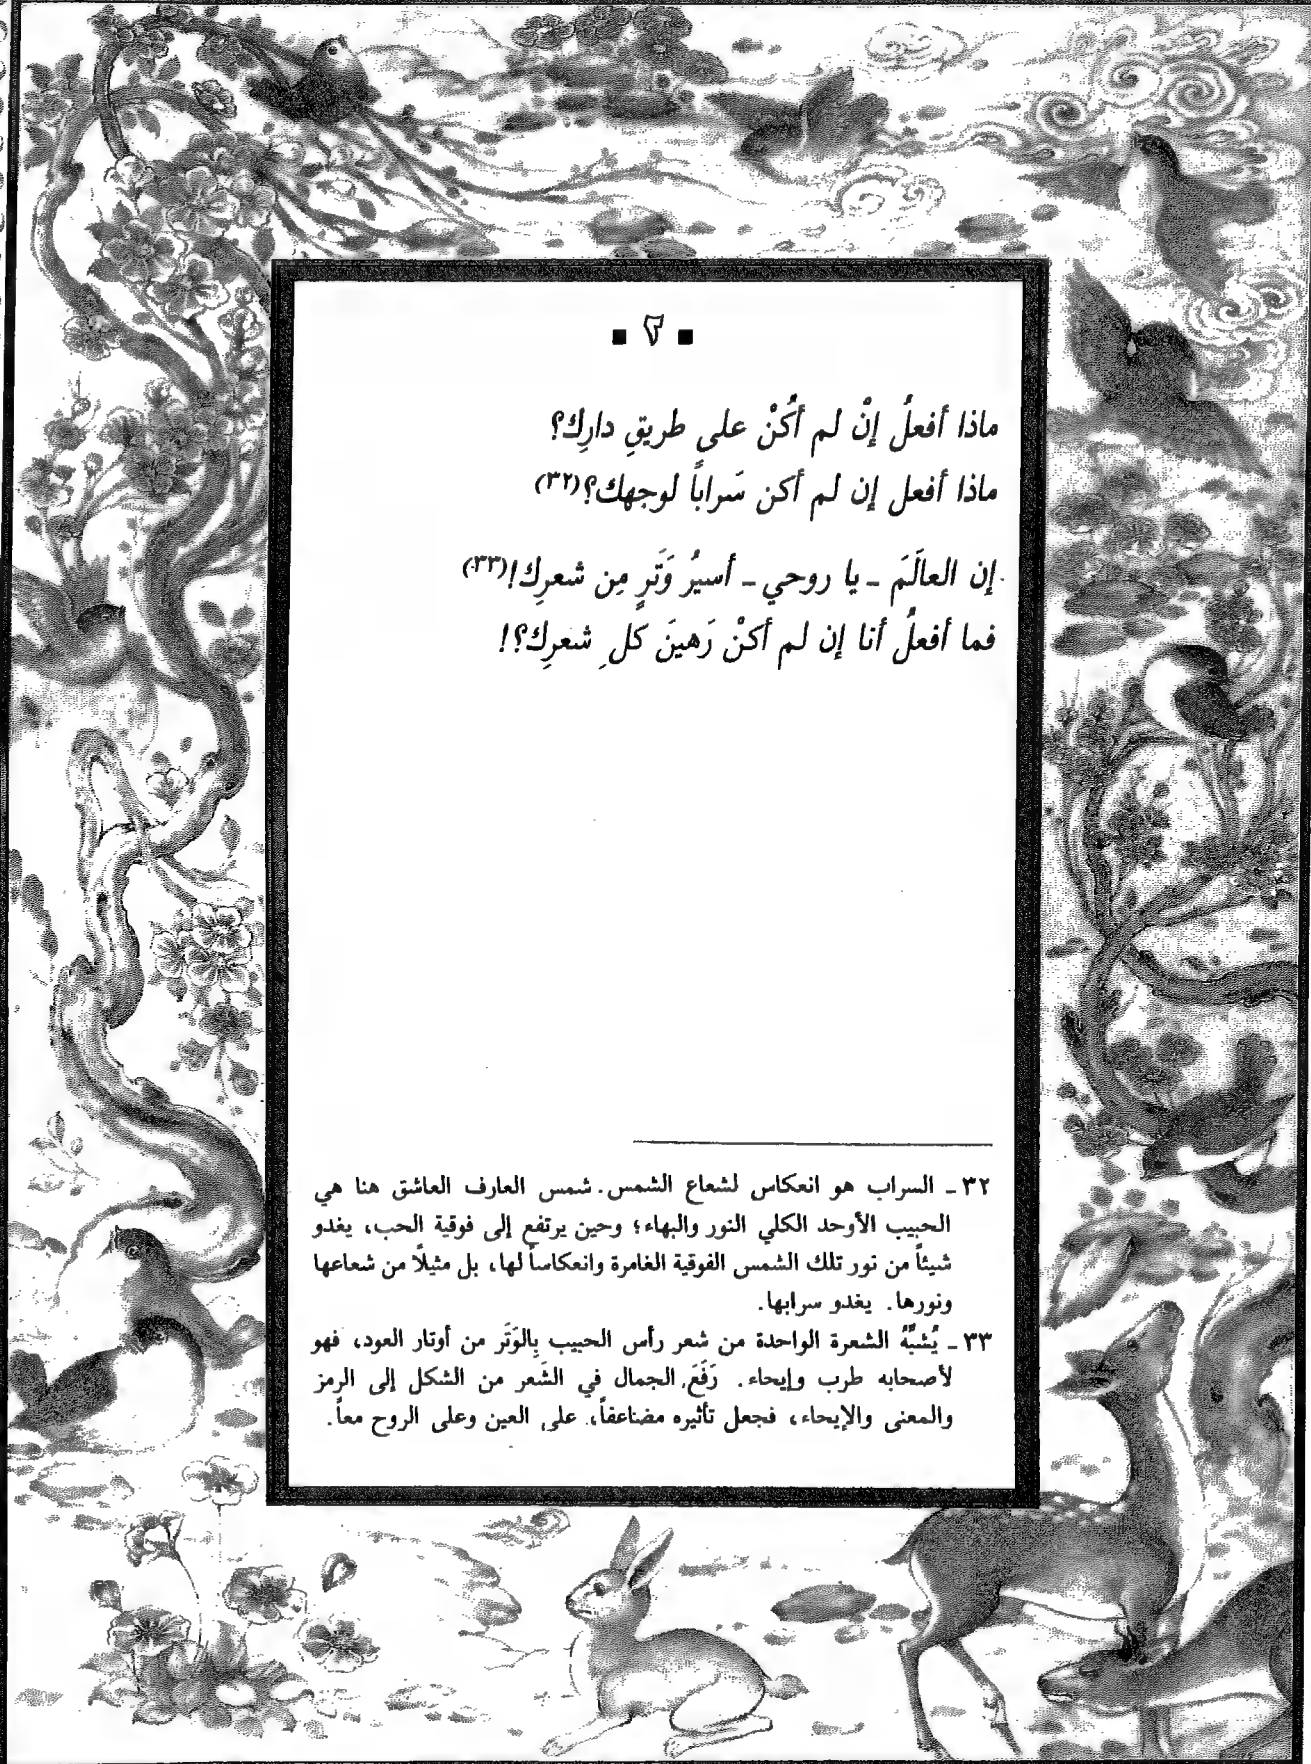 ▪ ٢ ▪
ماذا أفعلُ إنْ لم أكُنْ على طريقِ دارِك؟
ماذا أفعل إن لم أكن سَراباً لوجهك؟(٣٢)
إن العالَمَ ـ يا روحي ـ أسيرُ وَتَرٍ مِن شعرِك!(٣٣)
فما أفعلُ أنا إن لم أكنْ رَهينَ كلِ شعرِك؟!
٣٢ ـ السراب هو انعكاس لشعاع الشمس. شمس العارف العاشق هنا هي
الحبيب الأوحد الكلي النور والبهاء؛ وحين يرتفع إلى فوقية الحب، يغدو
شيئاً من نور تلك الشمس الفوقية الغامرة وانعكاساً لها، بل مثيلاً من شعاعها
ونورها. يغدو سرابها.
٣٣ ـ يُشبَّهُ الشعرة الواحدة من شعر رأس الحبيب بِالوَتَر من أوتار العود، فهو
لأصحابه طرب وإيحاء. رَفَعَ الجمال في الشَعر من الشكل إلى الرمز
والمعنى والإيحاء، فجعل تأثيره مضاعفاً، على العين وعلى الروح معاً.